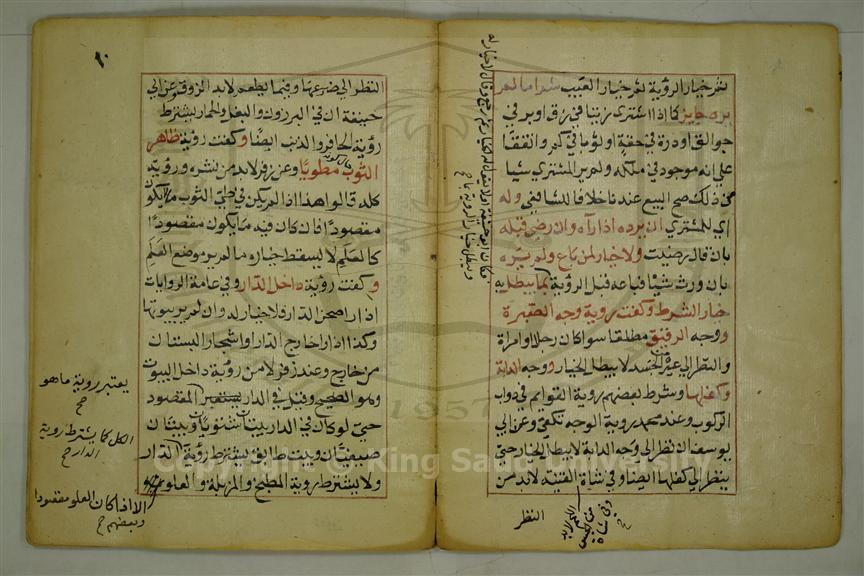 بشرخيار الرؤية ثم خيار العيب شراء ما لم
يره جايز كما اذا اشترى زيتا في زق او بر في
جوالق او درة في حقة او ثوبا في كم واتفقا
على انه موجود في ملكه ولم ير المشتري شيا
من ذلك صح البيع عندنا خلافا للشافعي وله
اي للمشتري ان يرده اذا رآه وان رضي قبله
بان قال رضيت ولا خيار لمن باع ولم يره
بان ورث شيئا فباعه قبل الرؤية كما يبطل به
خيار الشرط وكفت روية وجه الصبرة
ووجه الرقيق مطلقا سوا كان رجلا او امراة
والنظر الى غيره من الجسد لا يبطل الخيار ووجه الدابة
وكفلها وشرط بعضهم روية القوايم في دواب
الركوب وعند محمد روية الوجه تكفي وعن ابي
يوسف ان نظر الى وجه الدابة لا يبطل الخيار حتى
ينظر الى كفلها ايضا وفي شاة القنية لا بد من
النظر
النظر الى ضرعها وفيما يطعم لا بد من الذوق وعن ابي
حنيفة ان في البرذون والبغل والحمار يشترط
رؤية الحافر والذنب ايضا وكفت رؤية ظاهر
الثوب مطويا وعن زفر لا بد من نشره ورؤية
كله قالوا هذا اذا لم يكن في طي الثوب ما يكون
مقصودا فان كان فيه ما يكون مقصودا
كالعلم لا يسقط خياره ما لم ير موضع العلم
وكفت رؤية داخل الدار وفي عامة الروايات
اذا راى صحن الدار فلا خيار له وان لم ير بيوتها
وكذا اذا راى خارج الدار او اشجار البستان
من خارج وعند زفر لا بد من رؤية داخل البيوت
وهو الصحيح وقيل في الدار يعتبر المقصود
حتى لو كان في الدار بيتان شتويان وبيتان
صيفيان وبيت طابق يشترط رؤية الدار
ولا يشترط روية المطبخ والمزبلة والعلو
يعتبر روية ما هو
الكل كما يشترط روية
الدار ح
الا اذا كان العلو مقصودا
وبعضهم ح
Copyright © King Saud University
1957